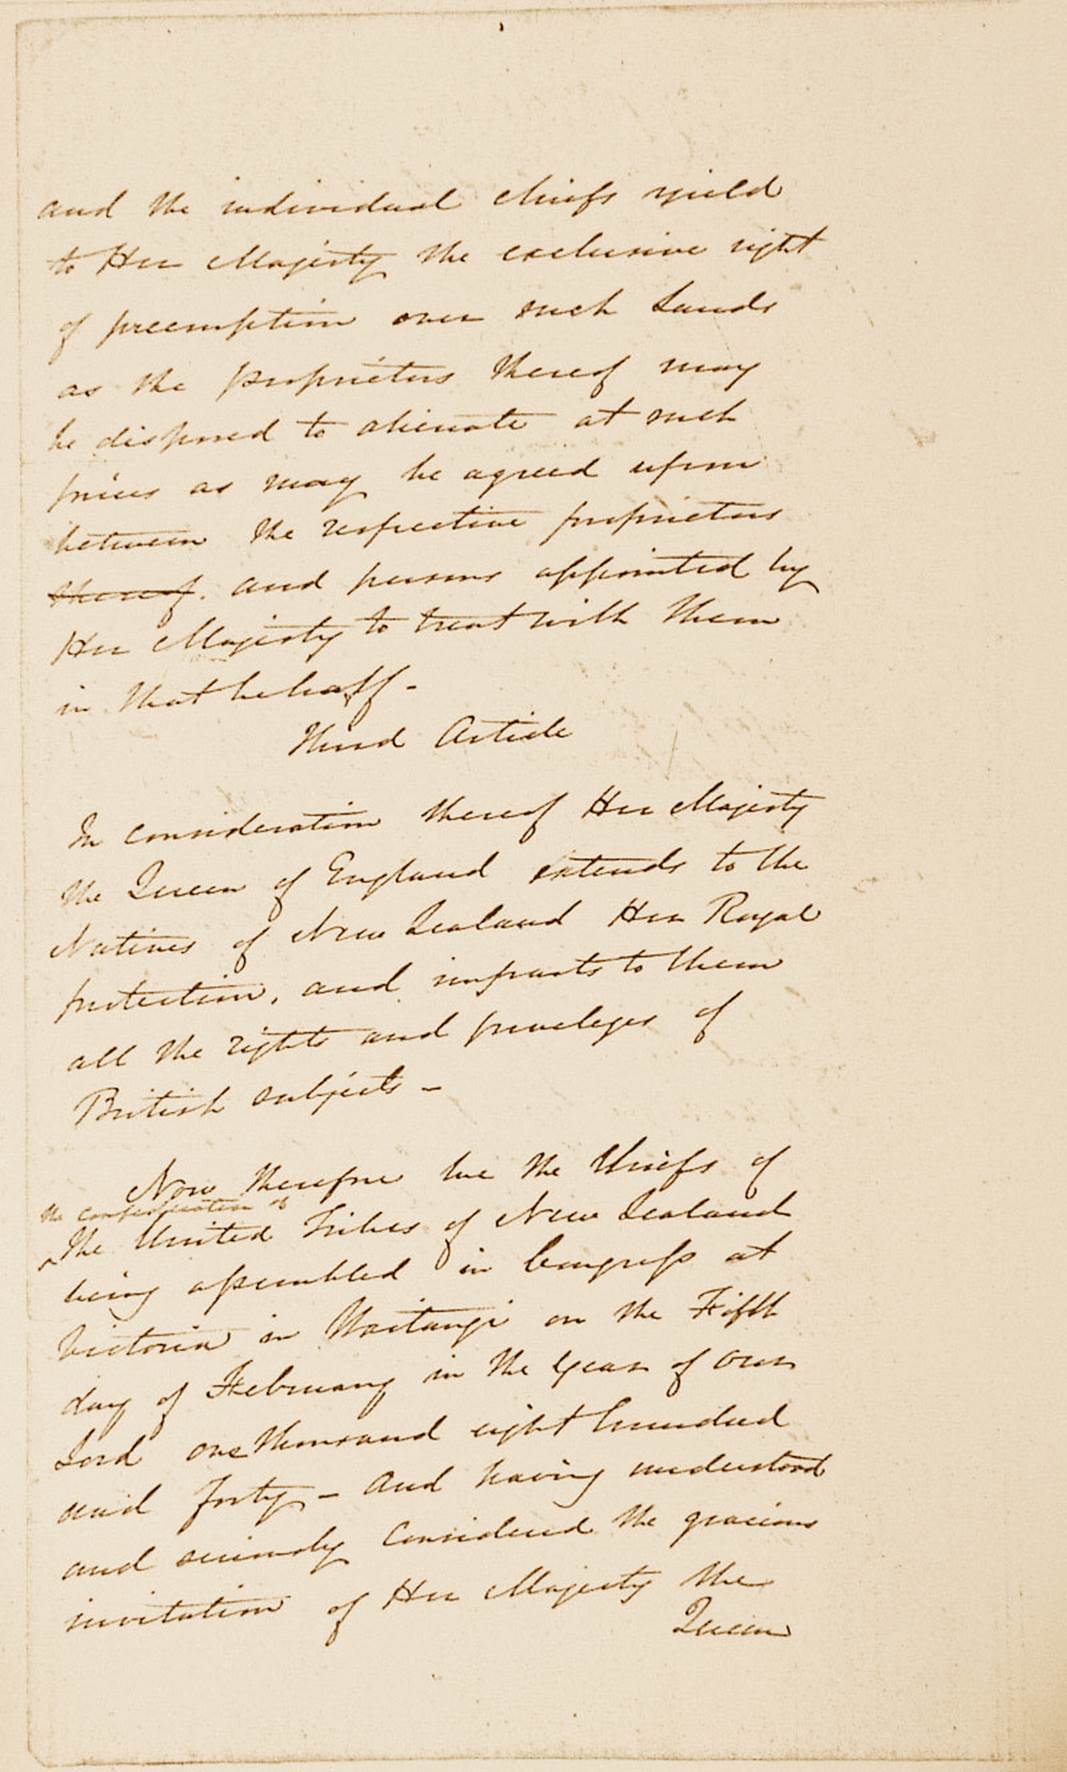 and the individual chiefs yield
to Her Majesty the exclusive right
of preemption over such Lands
as the proprietors thereof may
be disposed to alienate at such
prices as may be agreed upon
between the respective proprietors
thereof. and persons appointed by
Her Majesty to treat with them
in that behalf -
Third Article
In consideration thereof Her Majesty
the Queen of England extends to the
Natives of New Zealand Her Royal
protection, and imparts to them
all the rights and priveleges of
British subjects -
Now therefore We the Chiefs of
the confederation of
The United Tribes of New Zealand
being assembled in Congress at
Victoria in Waitangi on the Fifth
day of February in the Year of our
Lord one thousand eight hundred
and forty - And having understood
and seriously considered the gracious
invitation of Her Majesty the
Queen